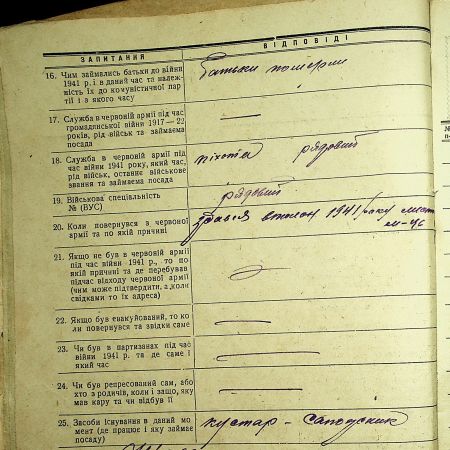 ЗАПИТАННЯ
ВІДПОВІДІ
16. Чим займались батьки до війни
1941 р. і в даний час та належ-
ність їх до комуністичної пар
тії і з якого часу
Батьки померли
17. Служба в червоній армії під час
громадянської війни 1917—22
років, рід військ та займаєма
посада
—
18. Служба в червоній армії під
час війни 1941 року, який час,
рід військ, останнє військове
звання та займаєма посада
піхота рядовий
19. Військова спеціальність
№ (ВУС)
рядовий
20. Коли повернувся з червоної
армії та по якій причині
здався в полон 1941 року
21. Якщо не був в червоній армії
під час війни 1941 р., то по
якій причині та де перебував
підчас відходу червоної армії
(чим може підтвердити, а коли
свідками то їх адреса)
—
22. Якщо був евакуйований, то ко
ли повернувся та звідки саме
—
23. Чи був в партизанах під час
війни 1941 р. та де саме і
який час
—
24. Чи був репресований сам, або
хто з родичів, коли і защо, яку
мав кару та чи відбув її
—
25. Засоби існування в даний мо
мент (де працює і яку займає
посаду)
кустар - сапожник